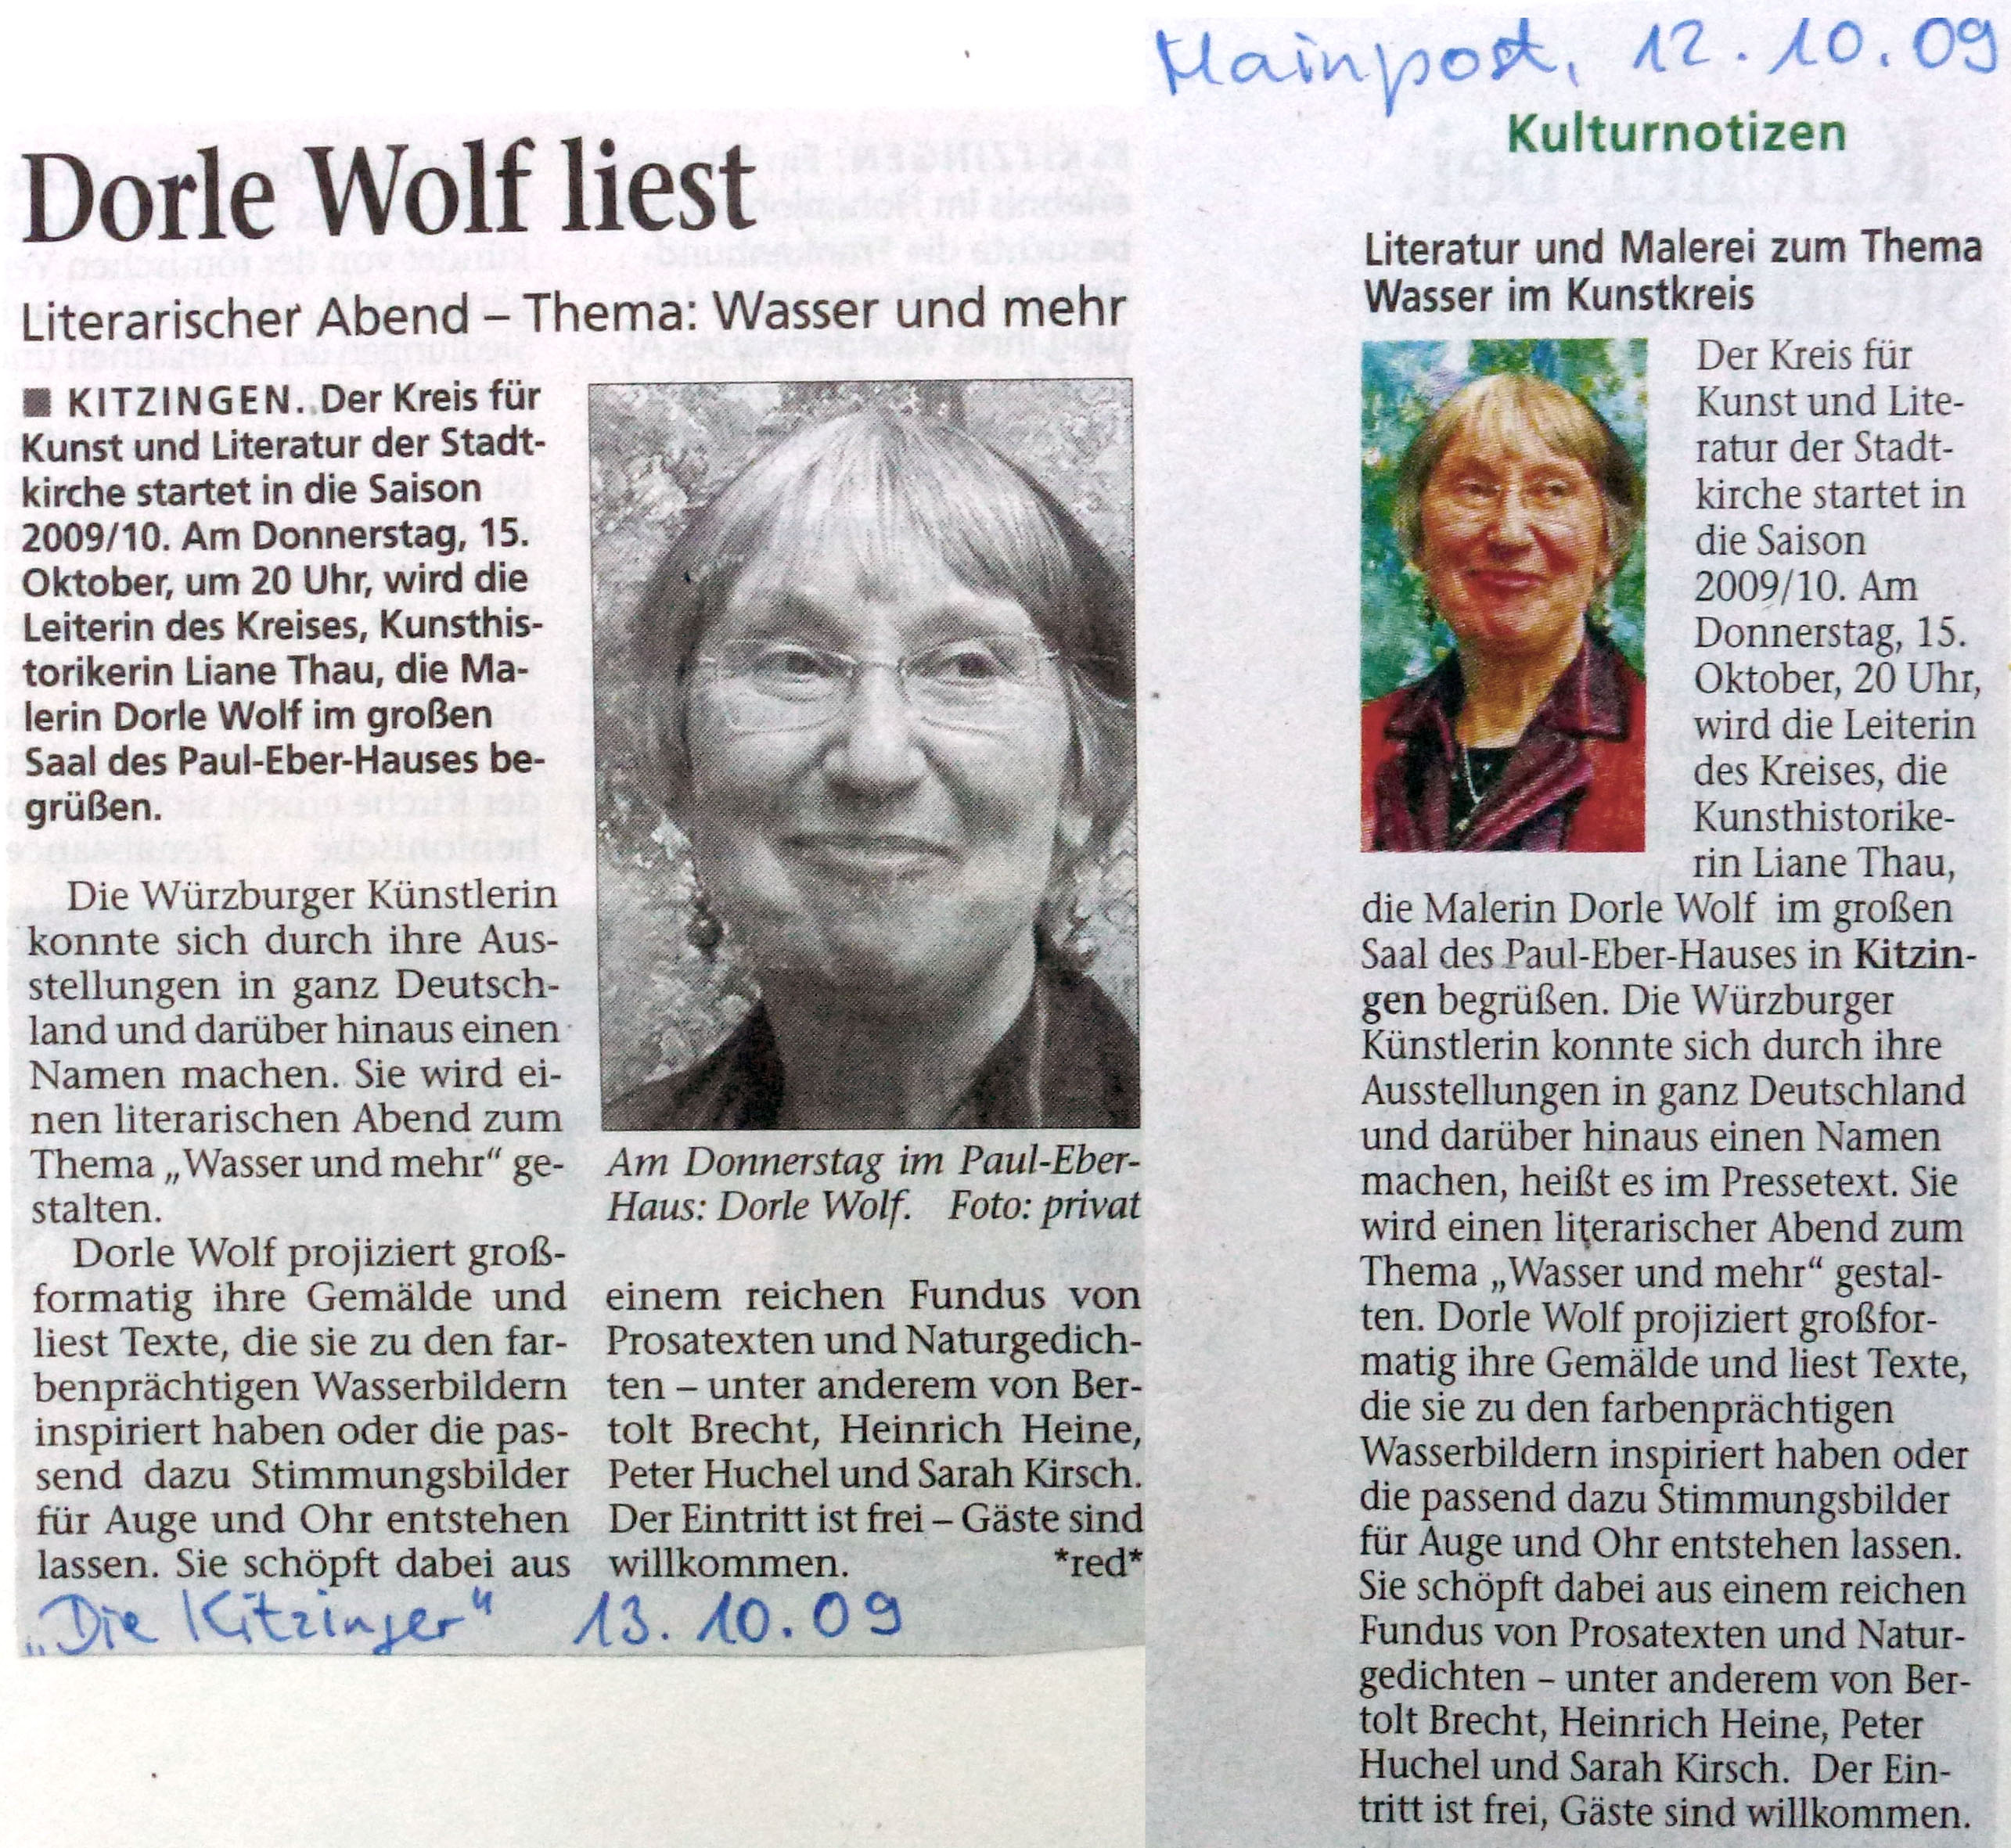 Dorle Wolf liest
Literarischer Abend – Thema: Wasser und mehr
■ KITZINGEN. Der Kreis für
Kunst und Literatur der Stadt-
kirche startet in die Saison
2009/10. Am Donnerstag, 15.
Oktober, um 20 Uhr, wird die
Leiterin des Kreises, Kunsthis-
torikerin Liane Thau, die Ma-
lerin Dorle Wolf im großen
Saal des Paul-Eber-Hauses be-
grüßen.
Die Würzburger Künstlerin
konnte sich durch ihre Aus-
stellungen in ganz Deutsch-
land und darüber hinaus einen
Namen machen. Sie wird ei-
nen literarischen Abend zum
Thema „Wasser und mehr“ ge-
stalten.
Dorle Wolf projiziert groß-
formatig ihre Gemälde und
liest Texte, die sie zu den far-
benprächtigen Wasserbildern
inspiriert haben oder die pas-
send dazu Stimmungsbilder
für Auge und Ohr entstehen
lassen. Sie schöpft dabei aus
Am Donnerstag im Paul-Eber-
Haus: Dorle Wolf. Foto: privat
einem reichen Fundus von
Prosatexten und Naturgedich-
ten – unter anderem von Ber-
tolt Brecht, Heinrich Heine,
Peter Huchel und Sarah Kirsch.
Der Eintritt ist frei – Gäste sind
willkommen. *red*
„Die Kitzinger“ 13.10.09
Mainpost, 12.10.09
Kulturnotizen
Literatur und Malerei zum Thema
Wasser im Kunstkreis
Der Kreis für
Kunst und Lite-
ratur der Stadt-
kirche startet in
die Saison
2009/10. Am
Donnerstag, 15.
Oktober, 20 Uhr,
wird die Leiterin
des Kreises, die
Kunsthistorike-
rin Liane Thau,
die Malerin Dorle Wolf im großen
Saal des Paul-Eber-Hauses in Kitzin-
gen begrüßen. Die Würzburger
Künstlerin konnte sich durch ihre
Ausstellungen in ganz Deutschland
und darüber hinaus einen Namen
machen, heißt es im Pressetext. Sie
wird einen literarischer Abend zum
Thema „Wasser und mehr“ gestal-
ten. Dorle Wolf projiziert großfor-
matig ihre Gemälde und liest Texte,
die sie zu den farbenprächtigen
Wasserbildern inspiriert haben oder
die passend dazu Stimmungsbilder
für Auge und Ohr entstehen lassen.
Sie schöpft dabei aus einem reichen
Fundus von Prosatexten und Natur-
gedichten – unter anderem von Ber-
tolt Brecht, Heinrich Heine, Peter
Huchel und Sarah Kirsch. Der Ein-
tritt ist frei, Gäste sind willkommen.